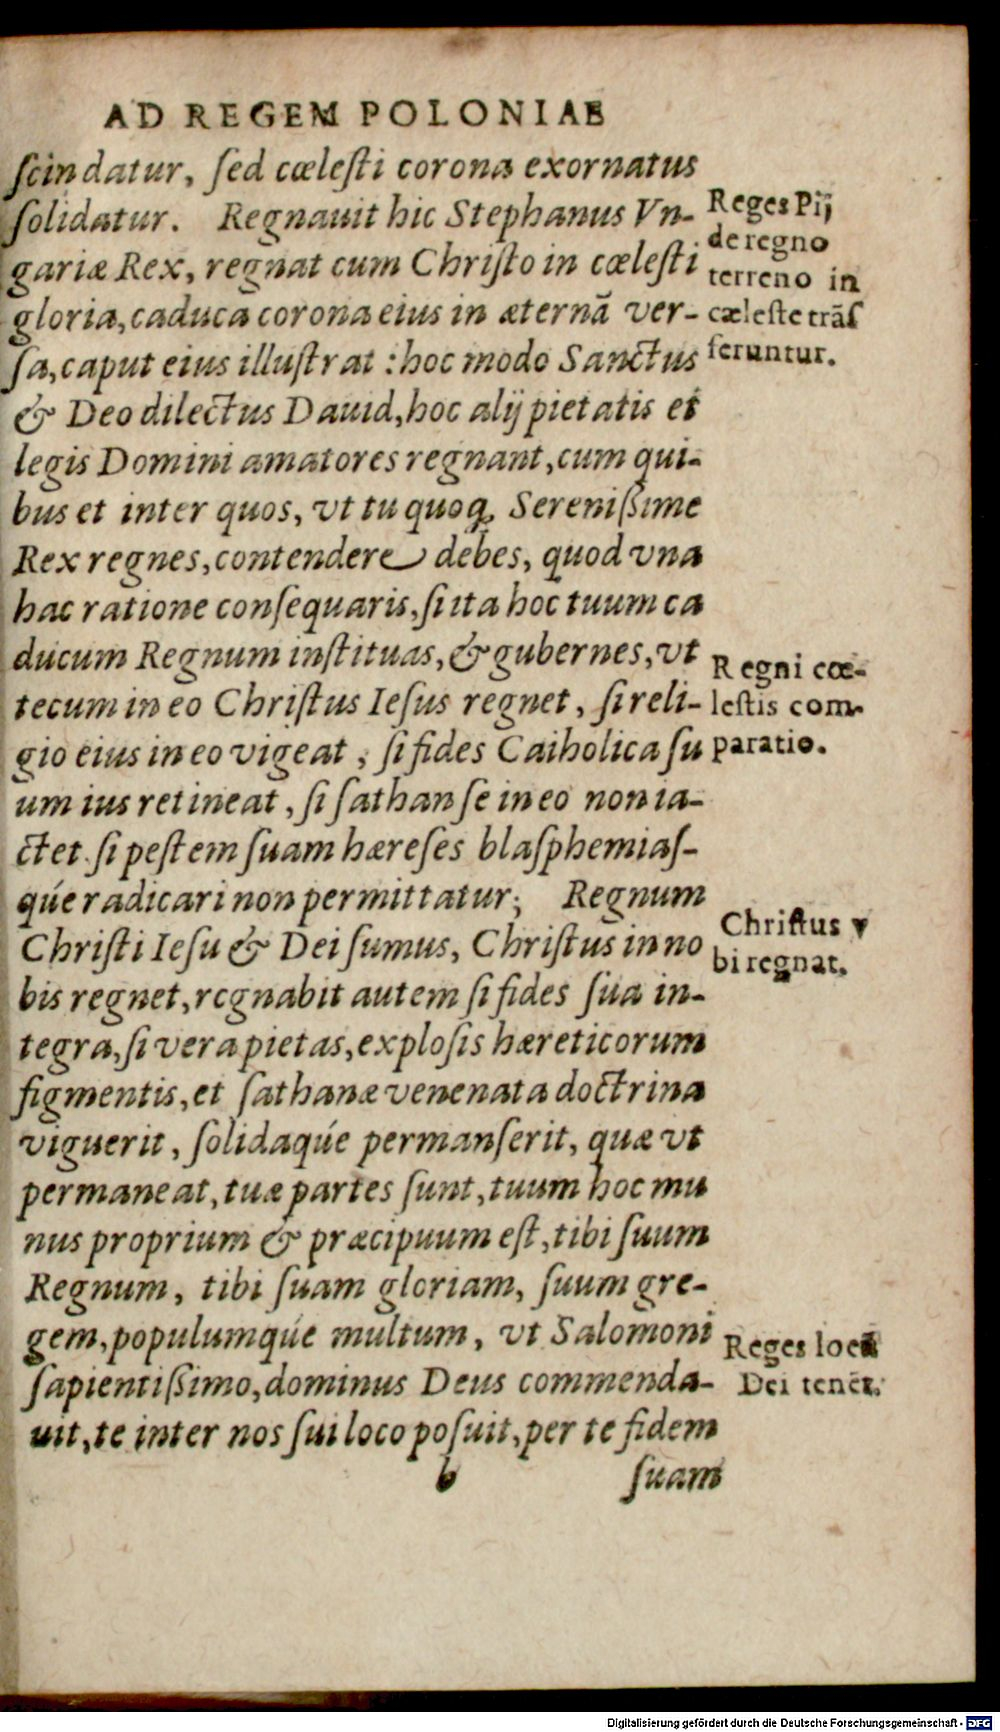 AD REGEM POLONIAE
ſcindatur, ſed cœleſti corona exornatus
ſolidatur. Regnauit hic Stephanus Vn-
gariæ Rex, regnat cum Chriſto in cœleſti
gloria, caduca corona eius in æternã ver-
ſa, caput eius illuſtrat : hoc modo Sanctus
& Deo dilectus Dauid, hoc alij pietatis et
legis Domini amatores regnant, cum qui-
bus et inter quos, vt tu quoq; Sereniſsime
Rex regnes, contendere debes, quod vna
hac ratione conſequaris, ſi ita hoc tuum ca
ducum Regnum inſtituas, & gubernes, vt
tecum in eo Chriſtus Ieſus regnet, ſi reli-
gio eius in eo vigeat, ſi fides Caiholica ſu
um ius retineat, ſi ſathan ſe in eo non ia-
ctet. ſi peſtem ſuam hæreſes blaſphemiaſ-
qúe radicari non permittatur; Regnum
Chriſti Ieſu & Dei ſumus, Chriſtus in no
bis regnet, rcgnabit autem ſi fides ſua in-
tegra, ſi vera pietas, exploſis hæreticorum
figmentis, et ſathanæ venenata doctrina
viguerit, ſolidaqúe permanſerit, quæ vt
permaneat, tuæ partes ſunt, tuum hoc mu
nus proprium & præcipuum eſt, tibi ſuum
Regnum, tibi ſuam gloriam, ſuum gre-
gem, populumqúe multum, vt Salomoni
ſapientiſsimo, dominus Deus commenda-
uit, te inter nos ſui loco poſuit, per te fidem
b ſuam
Reges Pij
de regno
terreno in
cæleſte trãſ
feruntur.
Regni cœ-
leſtis com-
paratio.
Chriſtus v
bi regnat.
Reges locũ
Dei tenẽt.
Digitalisierung gefördert durch die Deutsche Forschungsgemeinschaft - DFG